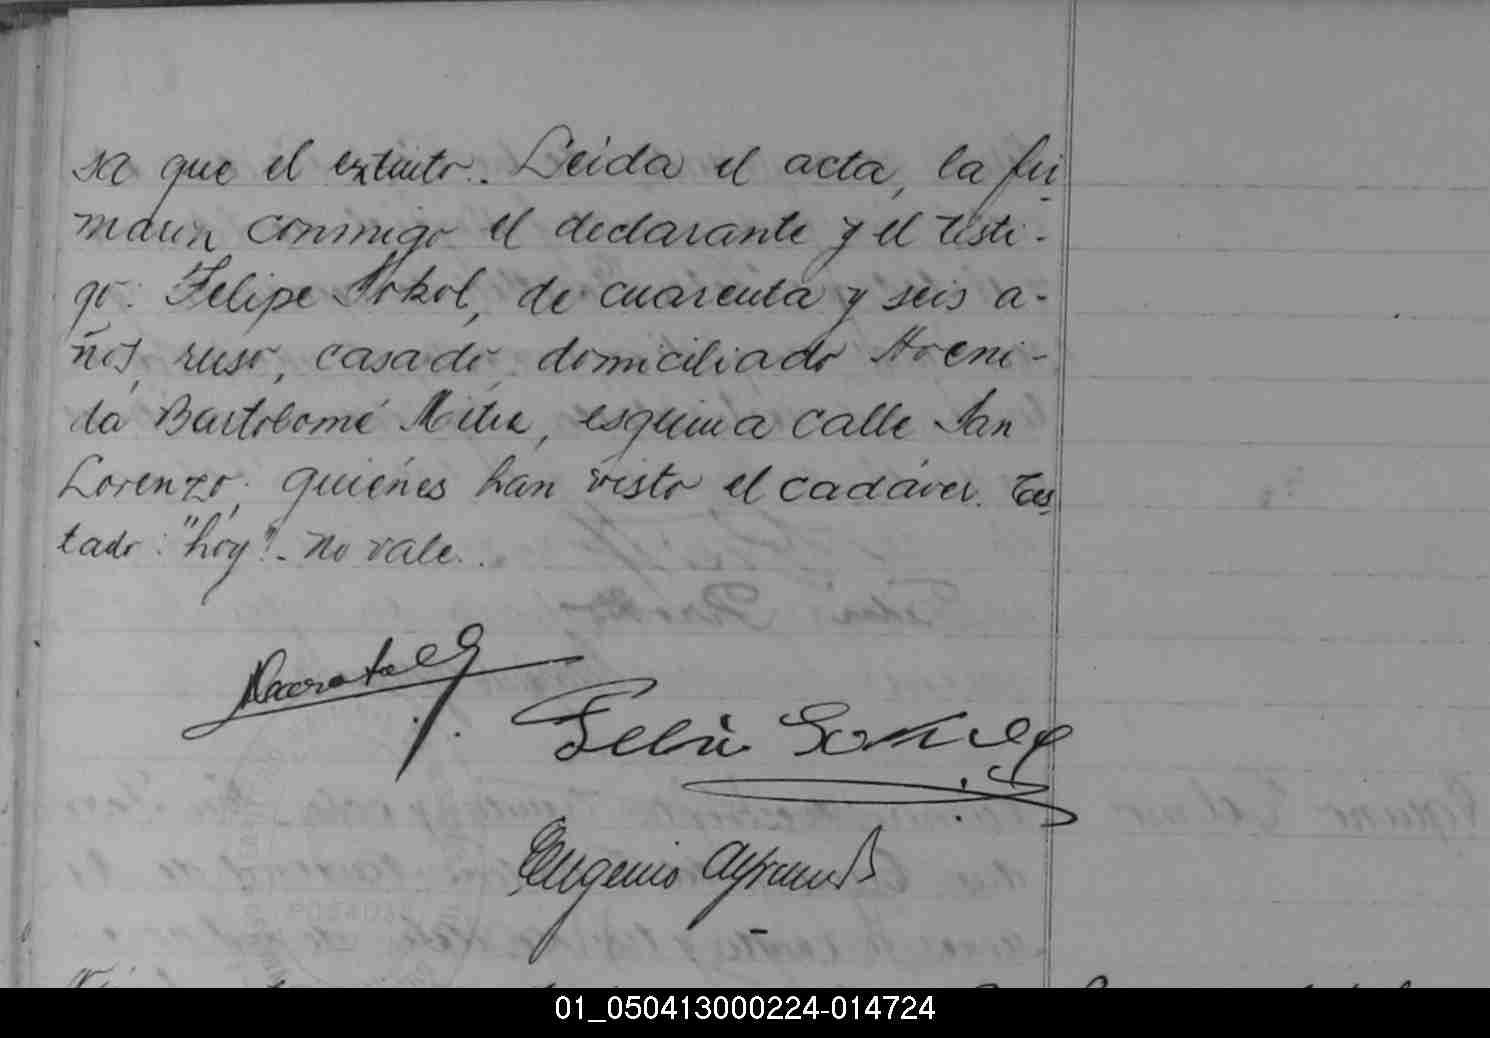 sa que el extinto. Leida el acta, la fir
maron conmigo el declarante y el testi-
go: Felipe Sokol, de cuarenta y seis a-
ños, ruso, casado, domiciliado Aveni-
da Bartolomé Mitre, esquina calle San
Lorenzo; quienes han visto el cadáver. Tes
tado: "hoy". No vale.
Eugenio
01_050413000224-014724